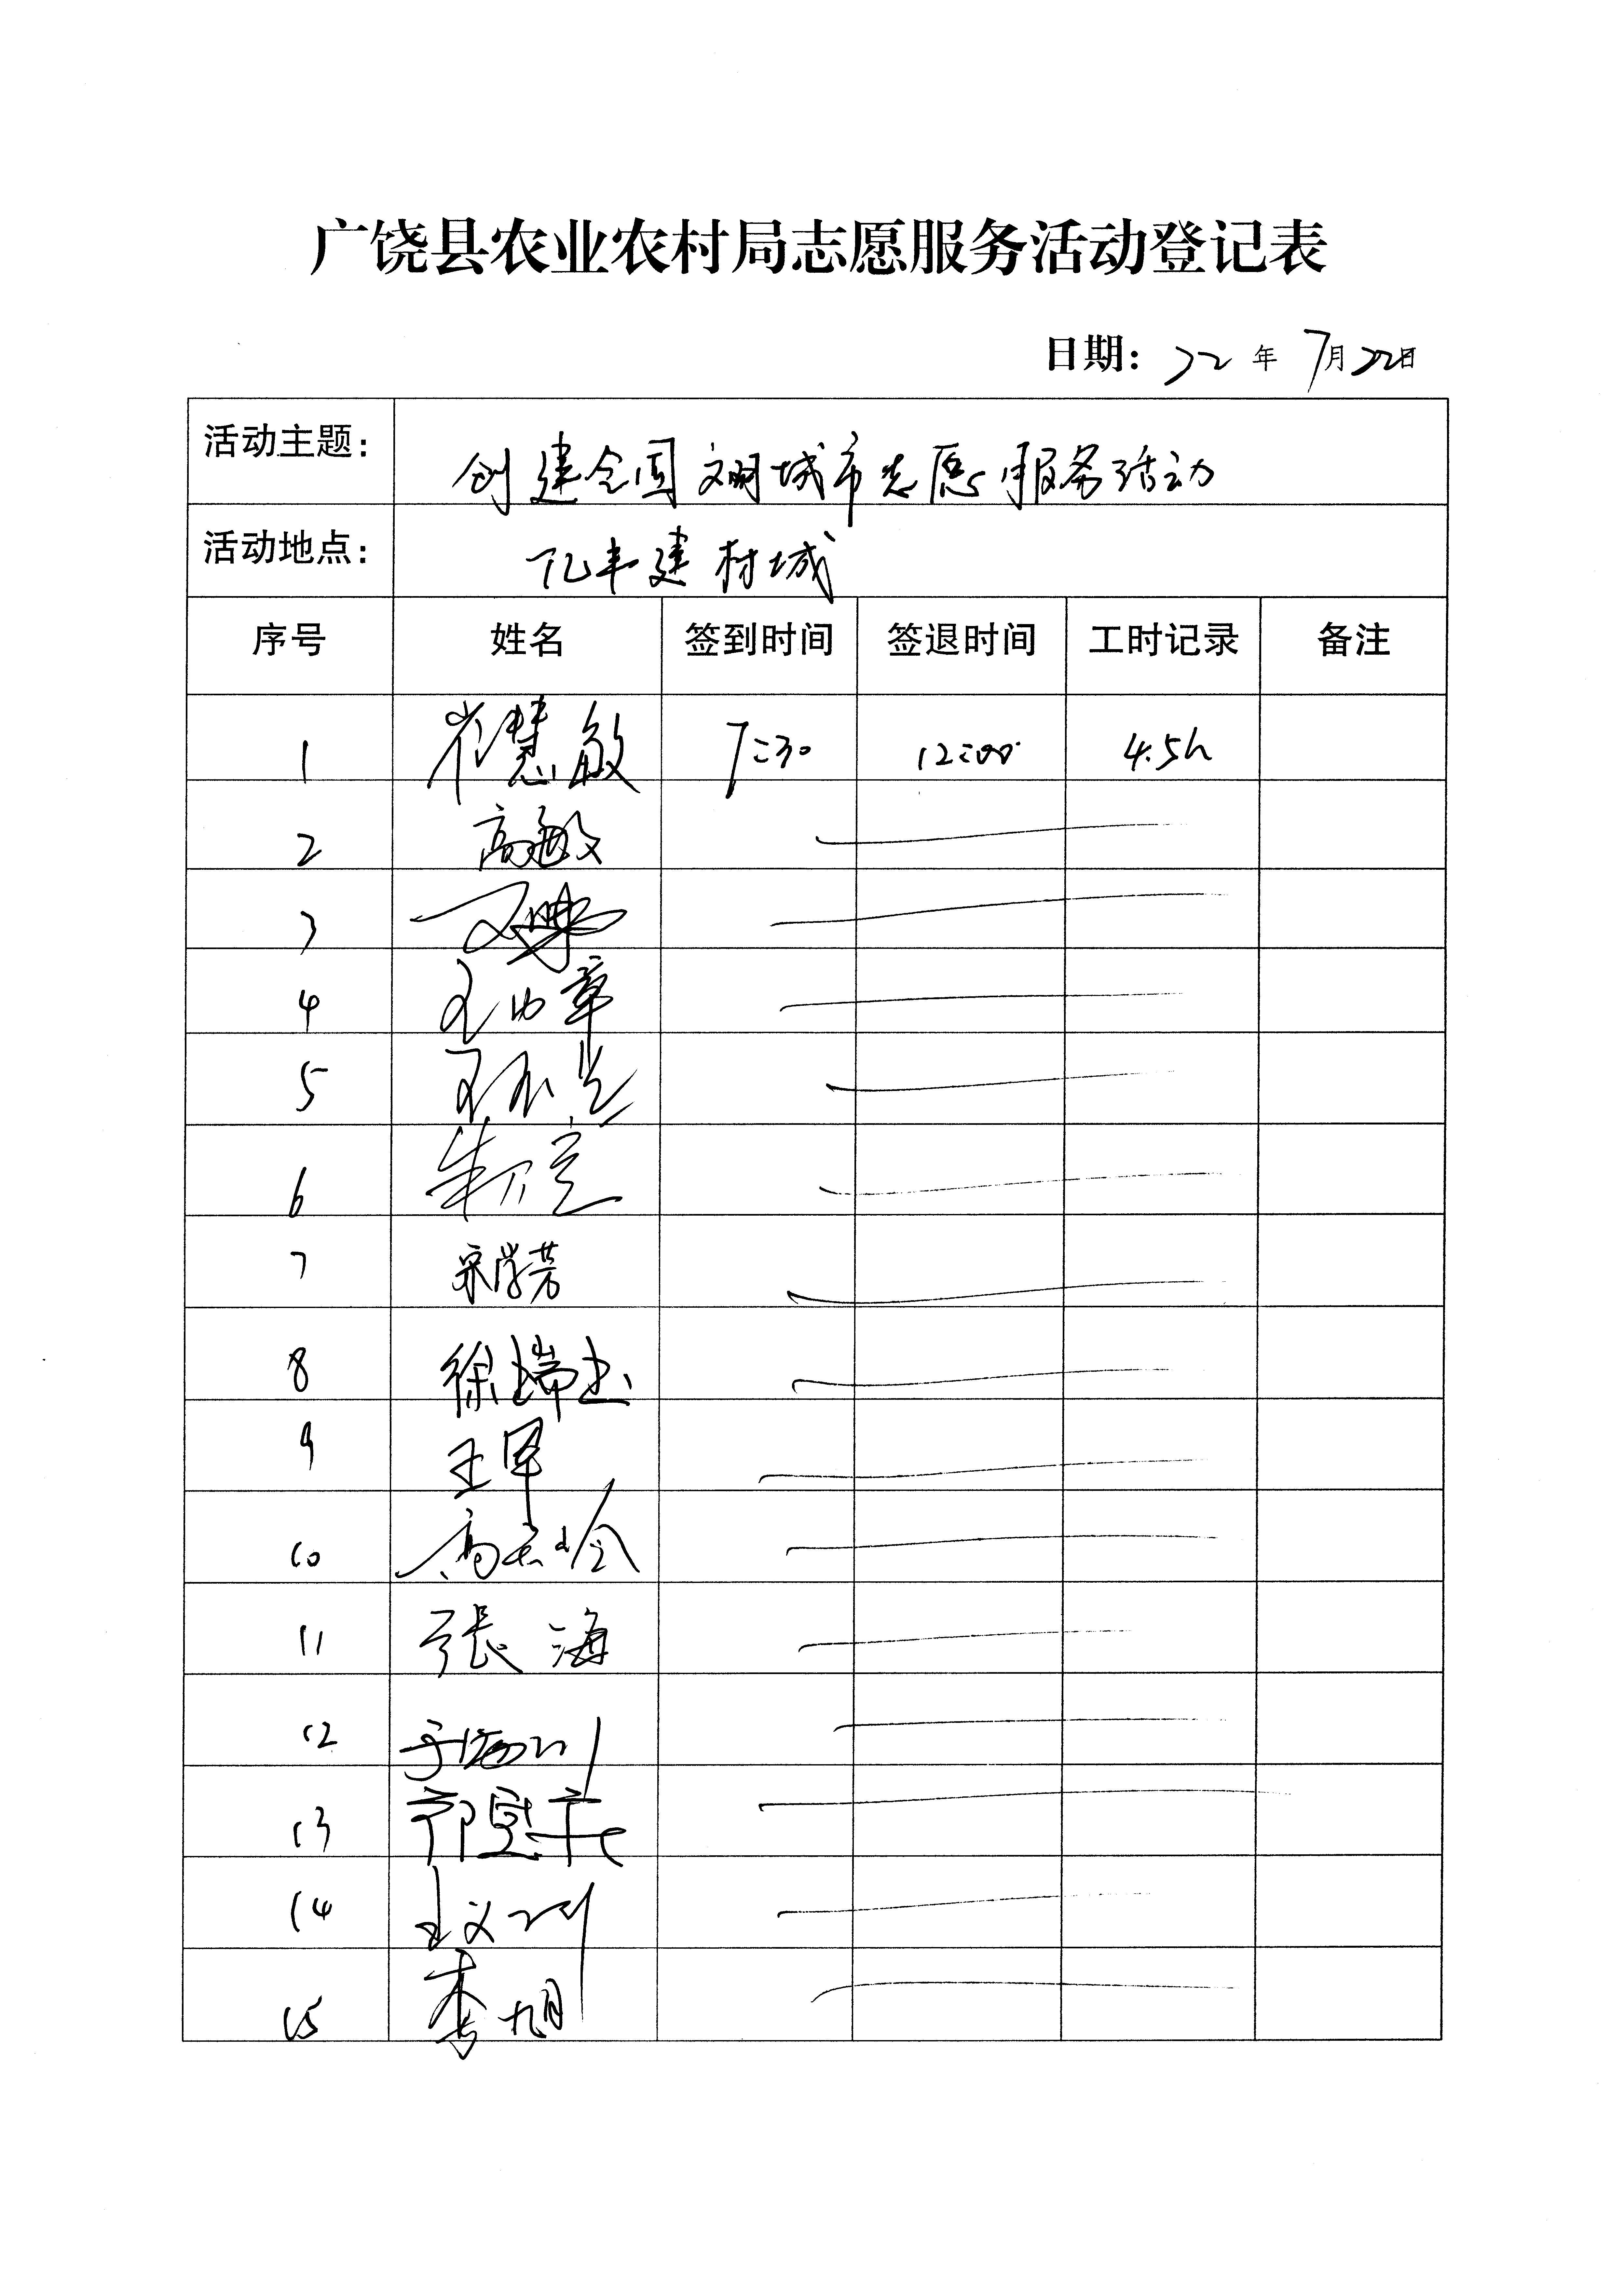 广饶县农业农村局志愿服务活动登记表
日期: 22 年 7月22日
活动主题: 创建全国文明城市志愿服务活动
活动地点: 亿丰建材城
序号 姓名 签到时间 签退时间 工时记录 备注
1 崔慧敏 7:30 12:00 4.5h
2 高敏
3
4
5
6
7 宋学芳
8 徐瑞玉
9 王军
10
11 張海
12
13
14
15 李旭